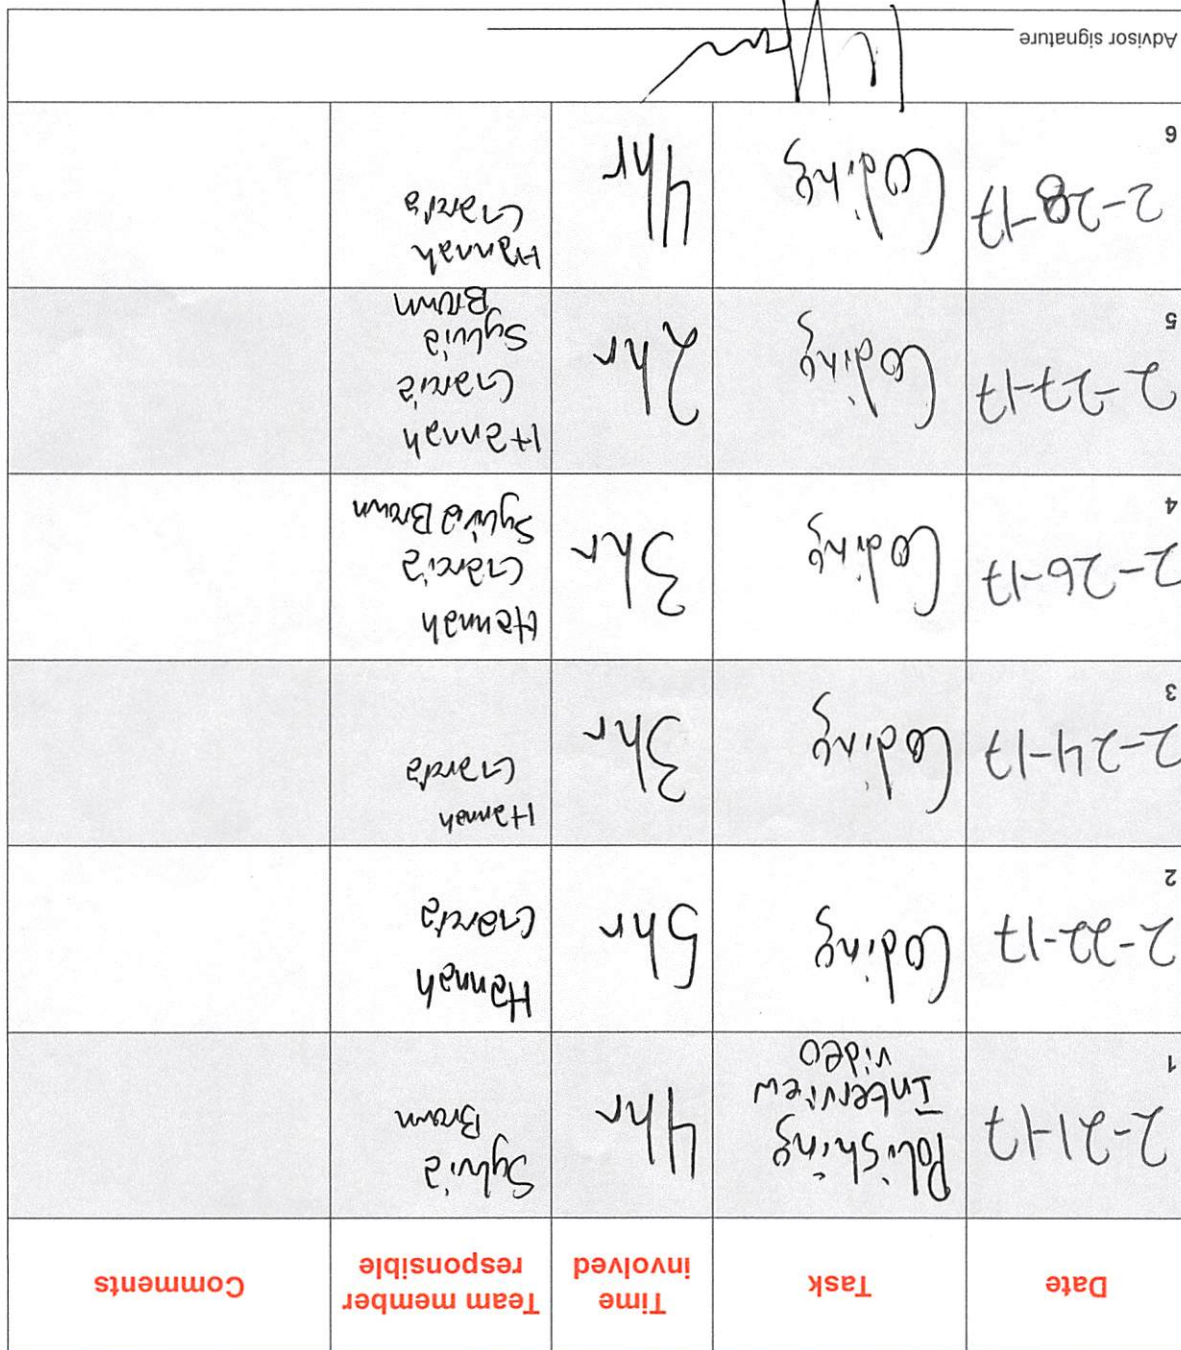 Date
Task
Time
involved
Team member
responsible
Comments
1
2-21-17
Polishing
Interview
video
4hr
Sylvia
Brown
2
2-22-17
Coding
5hr
Hannah
Garcia
3
2-24-17
Coding
3hr
Hannah
Garcia
4
2-26-17
Coding
3hr
Hannah
Garcia
Sylvia Brown
5
2-27-17
Coding
2hr
Hannah
Garcia
Sylvia
Brown
6
2-28-17
Coding
4hr
Hannah
Garcia
Advisor signature